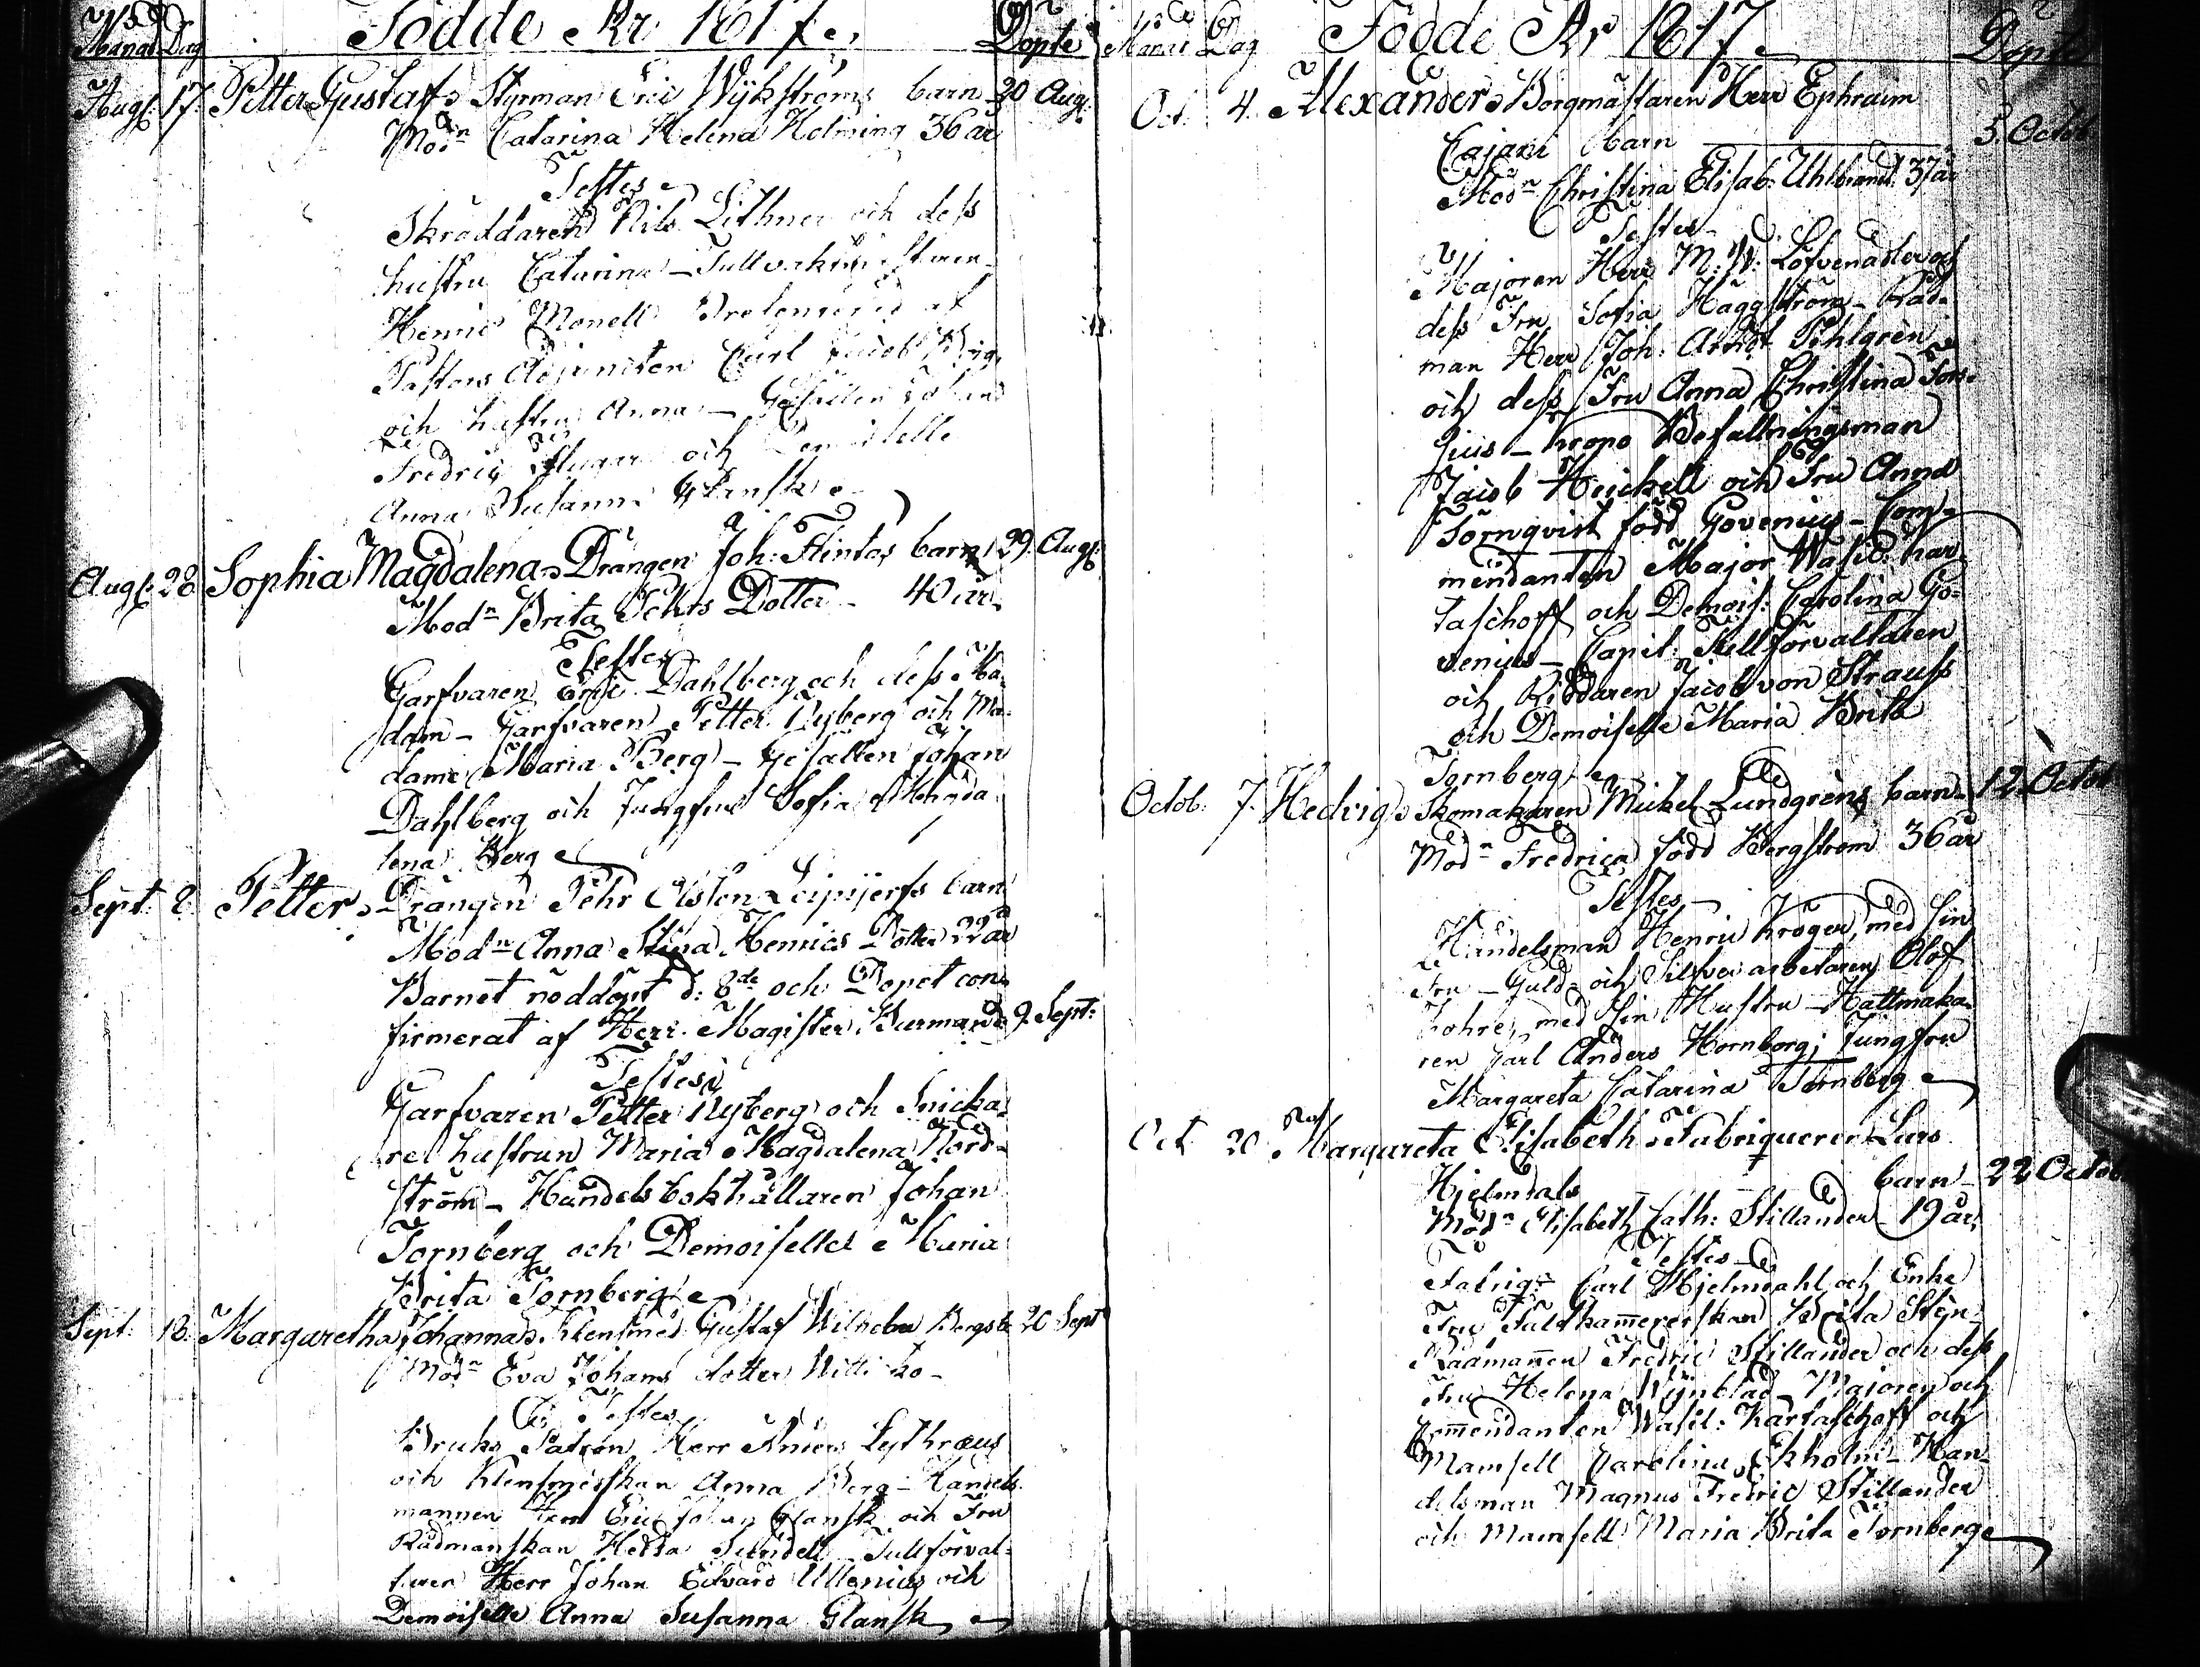 Månad Dag Födde År 1817 Döpte
Augs: 17. Petter Gustaf Styrman Eric Wijkströms barn 20 Aug:
Modn Catarina Helena Holming 36 år
Testes
Skräddaren Nils Lithner och dess
hustru Catarina – Tullvaktmästaren
Henric Monell
Pastors Adjuncten Carl Jacob
och hustru Anna – Gesellen Johan
Fredric och Demoiselle
Anna Susanna Glansk
Augs: 28. Sophia Magdalena Drängen Joh: Flintas barn 29. Augs:
Modn Brita Pehrs Dotter – 40 år
Testes
Garfvaren Eric Dahlberg och dess Ma-
dam – Garfvaren Petter Nyberg och Ma-
dame Maria Berg – Gesällen Johan
Dahlberg och Jungfru Sofia Magda
lena Berg
Sept: 8. Petter Drängen Pehr Olsson barn
Modn Anna Stina Henrics Dotter 22 år
Barnet nöddöpt d: 8de och Dopet con-
firmerat af Herr Magister Burman 9. Sept:
Testes
Garfvaren Petter Nyberg och Snicka-
re hustrun Maria Magdalena Nord-
ström – Handels bokhållaren Johan
Tornberg och Demoiselle Maria
Brita Tornberg
Sept: 18. Margaretha Johanna Klensmed Gustaf Wilhelm Bergs b. 20 Sept
Modn Eva Johans dotter
Testes
Bruks Patron Herr Anders Lythræus
och Klensmedskan Anna Berg – Handels
mannen Herr Eric Johan Glansk och Fru
Rådmanskan Hedda Sundell – Tullförval-
taren Herr Johan Edvard Ullenius och
Demoiselle Anna Susanna Glansk
Månad Dag Födde År 1817 Döpte
Oct 4. Alexander Borgmästaren Herr Ephraim
Cajani barn 5 Octob
Modn Christina Elisab: Uhlbrandt 37 år
Testes
Majoren Herr M: W: Löfvenadler och
dess Fru Sofia Häggström – Råd-
man Herr Joh: Arndt Pihlgren
och dess Fru Anna Christina For-
gius – Krono Befallningsman
Jacob Heickell och Fru Anna
Törnqvist född Govenius – Com-
mendanten Major Wasil: Kar-
taschoff och Demois: Carolina Go-
venius – Capit: Tullförvaltaren
och Riddaren Jacob von Strauss
och Demoiselle Maria Brita
Tornberg
Octob: 7. Hedvig Skomakaren Mickel Lundgrens barn 12 Octob
Modn Fredrica född Bergström 36 år
Testes
Handelsman Henric Kröger, med sin
Fru – Guld- och Silfver arbetaren Olof
Bohre, med sin Hustru – Hattmaka-
ren Carl Anders Hornborg; Jungfru
Margareta Catarina Tornberg
Oct 20 Margareta Elisabeth Fabriqueren Lars
Hjelmdals barn 22 Octob
Modn Elisabeth Cath: Stillander 19 år
Testes
Fabriqn Carl Hjelmdahl och Enke
Fru Tullkammererskan Brita Steijn-
Rådmannen Fredric Stillander och dess
Fru Helena Wijnblad – Majoren och
Commendanten Wasil: Kartaschoff och
Mamsell Carolina Ekholm – Han-
delsman Magnus Fredric Stillander
och Mamsell Maria Brita Tornberg